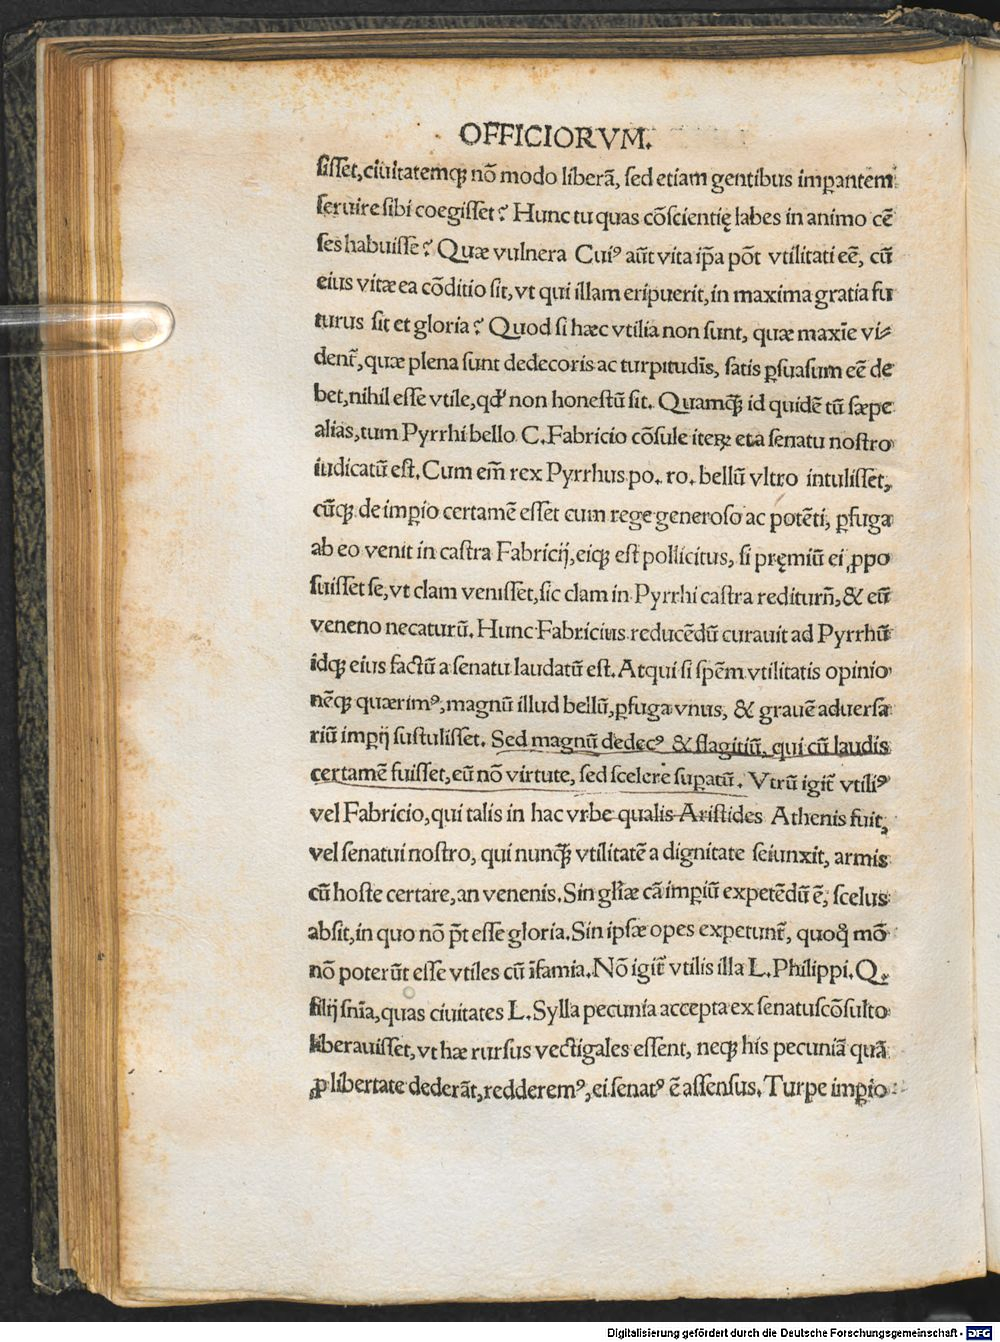 OFFICIORVM.
siſſet, ciuitatemqȝ nō modo liberā, ſed etiam gentibus imꝑantem
ſeruire ſibi coegiſſet? Hunc tu quas cōſcientię labes in animo cē
ſes habuiſſe? Quæ vulnera Cuiꝰ aūt vita ip̄a pōt vtilitati eē, cū
eius vitæ ea cōditio ſit, vt qui illam eripuerit, in maxima gratia fu
turus ſit et gloria? Quod ſi hæc vtilia non ſunt, quæ maxīe vi⸗
dent̄, quæ plena ſunt dedecoris ac turpitudīs, ſatis ꝑſuaſum eē de
bet, nihil eſſe vtile, qd' non honeſtū ſit. Quamqȝ̄ id quidē tū ſæpe
alias, tum Pyrrhi bello C. Fabricio cōſule iteꝝ et a ſenatu noſtro
iudicatū eſt. Cum em̄ rex Pyrrhus po. ro. bellū vltro intuliſſet,
cūqȝ de imꝑio certamē eſſet cum rege generoſo ac potēti, ꝑfuga
ab eo venit in caſtra Fabricij, eiqȝ eſt pollicitus, ſi pręmiū ei ꝓpo
ſuiſſet ſe, vt clam veniſſet, ſic clam in Pyrrhi caſtra rediturū, & eū
veneno necaturū. Hunc Fabricius reducēdū curauit ad Pyrrhū
idqȝ eius factū a ſenatu laudatū eſt. Atqui ſi ſpēm vtilitatis opinio
nēqȝ quærimꝰ, magnū illud bellū, ꝑfuga vnus, & grauē aduerſa
riū imꝑij ſuſtuliſſet. Sed magnū dedecꝰ & flagitiū, qui cū laudis
certamē fuiſſet, eū nō virtute, ſed ſcelere ſuꝑatū. Vtrū igit̄ vtiliꝰ
vel Fabricio, qui talis in hac vrbe qualis Ariſtides Athenis fuit,
vel ſenatui noſtro, qui nunqȝ̄ vtilitatē a dignitate ſeiunxit, armis
cū hoſte certare, an venenis. Sin gl̄iæ cā imꝑiū expetēdū ē, ſcelus
abſit, in quo nō p̄t eſſe gloria. Sin ipſæ opes expetunt̄, quoq̊ mō
nō poterūt eſſe vtiles cū īfamia. Nō igit̄ vtilis illa L. Philippi. Q.
filij ſnīa, quas ciuitates L. Sylla pecunia accepta ex ſenatuſcōſulto
liberauiſſet, vt hæ rurſus vectigales eſſent, neqȝ his pecuniā quā
ꝓ libertate dederāt, redderemꝰ, ei ſenatꝰ ē aſſenſus. Turpe imꝑio
Digitalisierung gefördert durch die Deutsche Forschungsgemeinschaft - DFG